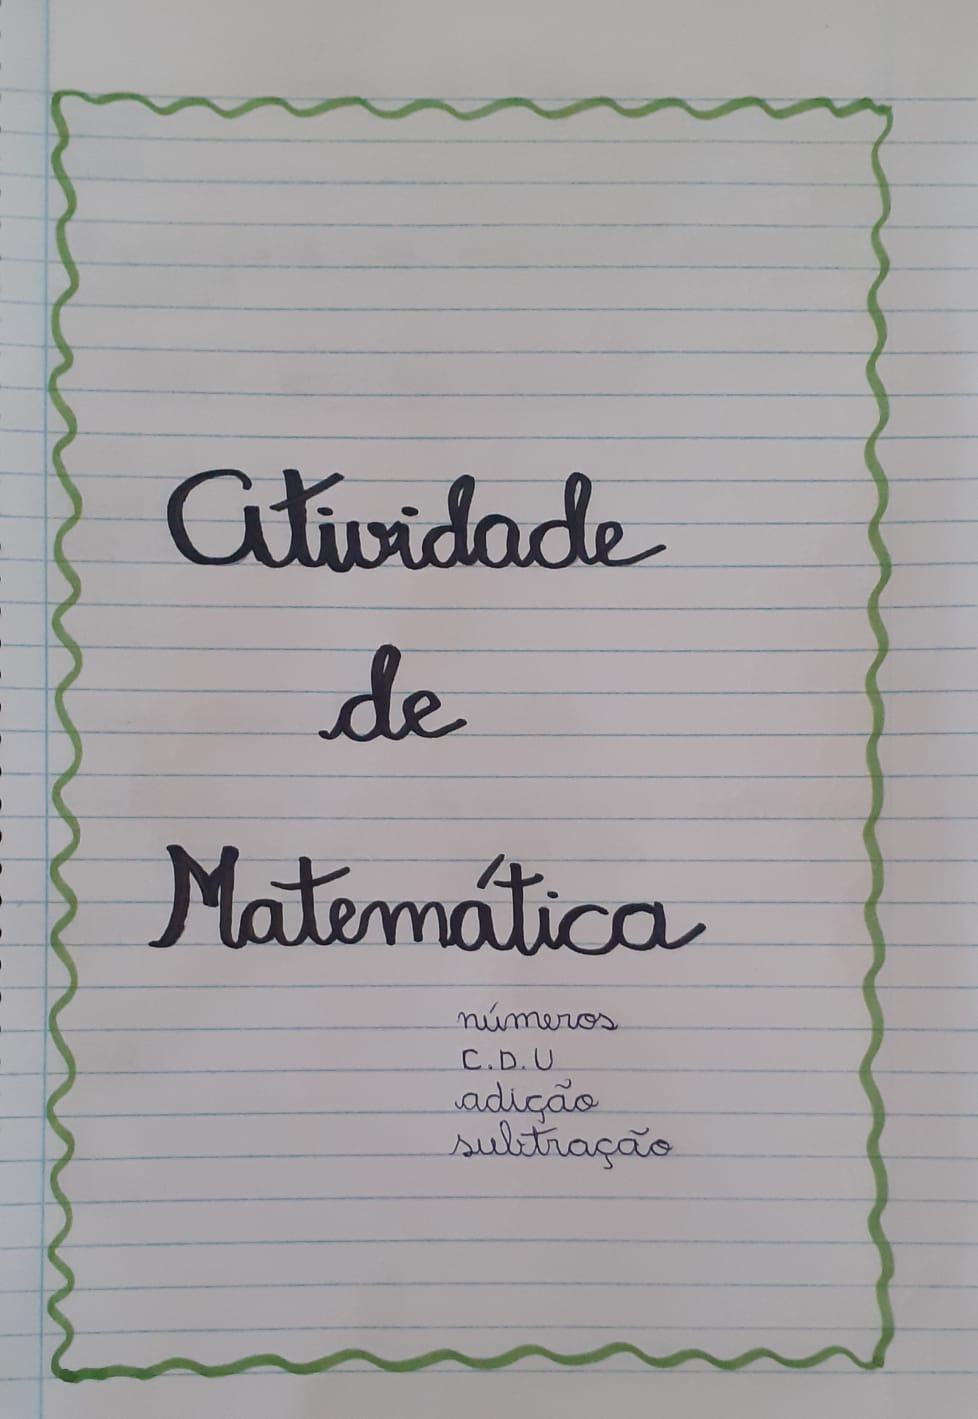 Atividade
de
Matemática
números
C.D.U
adição
subtração